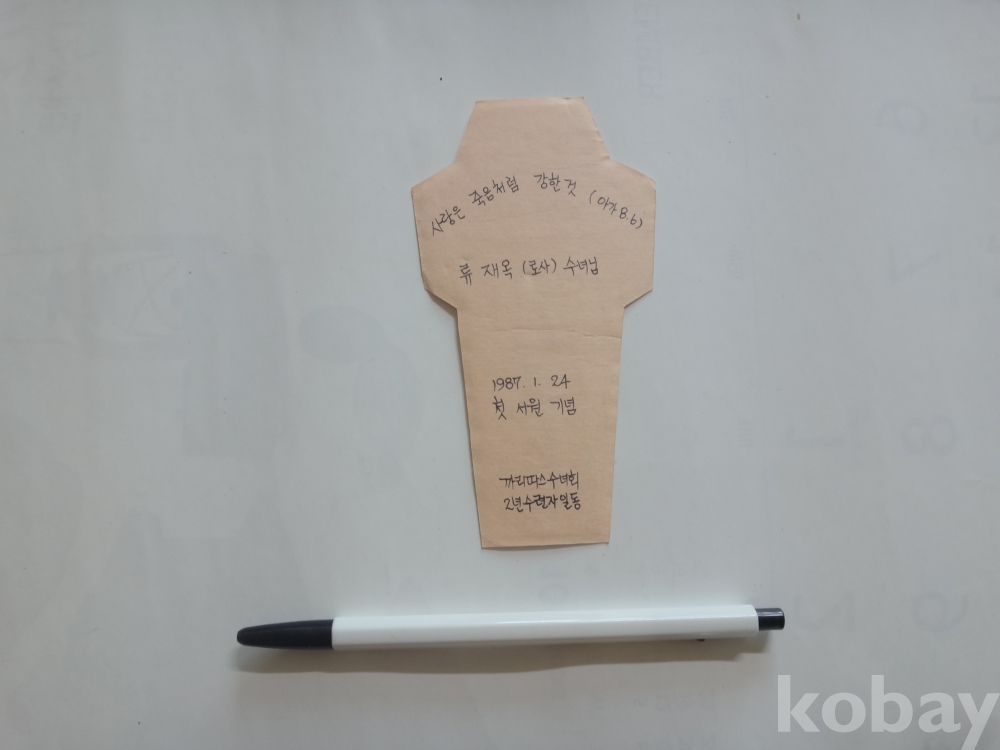 사랑은 죽음처럼 강한것 (아가 8.6)
류 재옥 (로사) 수녀님
1987. 1. 24
첫 서원 기념
까리따스수녀회
2년수련자일동
kobay